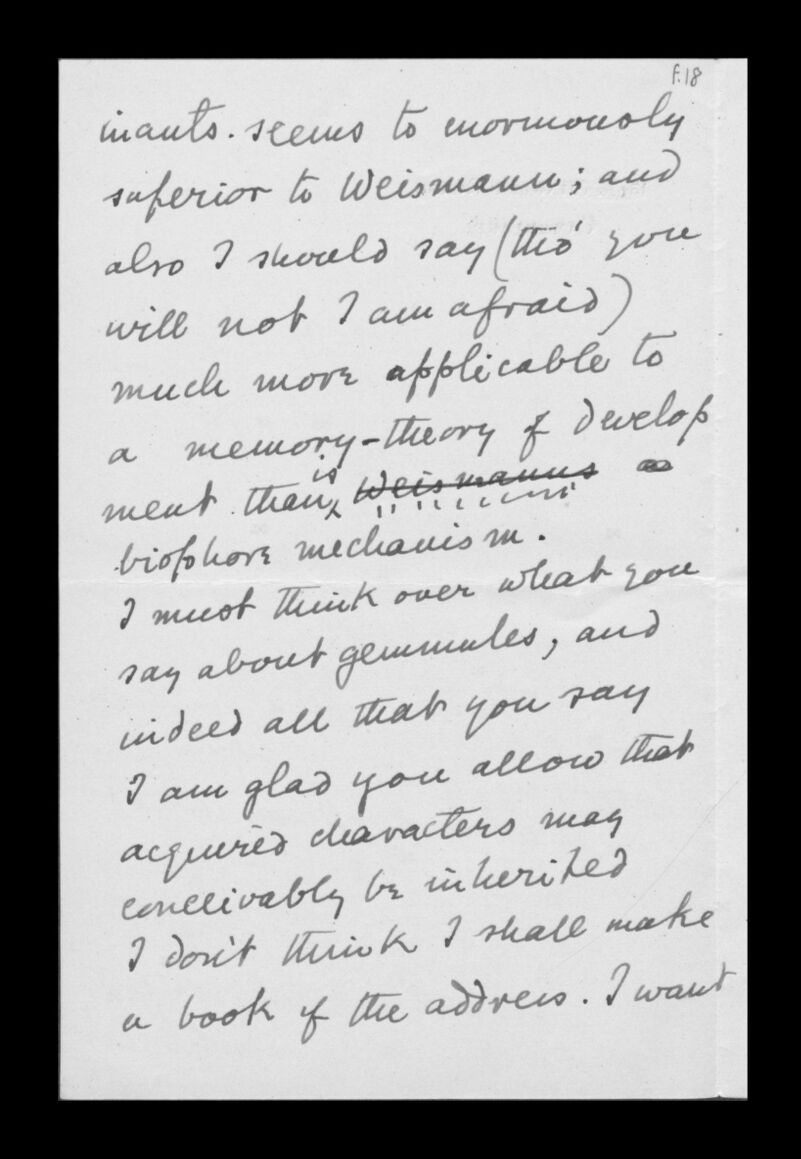 f.18
inants. seems to enormously
superior to Weismann; and
also I should say (tho' you
will not I am afraid)
much more applicable to
a memory-theory of develop
ment than is Weismanns
biophore mechanism.
I must think over what you
say about gemmules, and
indeed all that you say
I am glad you allow that
acquired characters may
conceivably be inherited
I don't think I shall make
a book of the address. I want